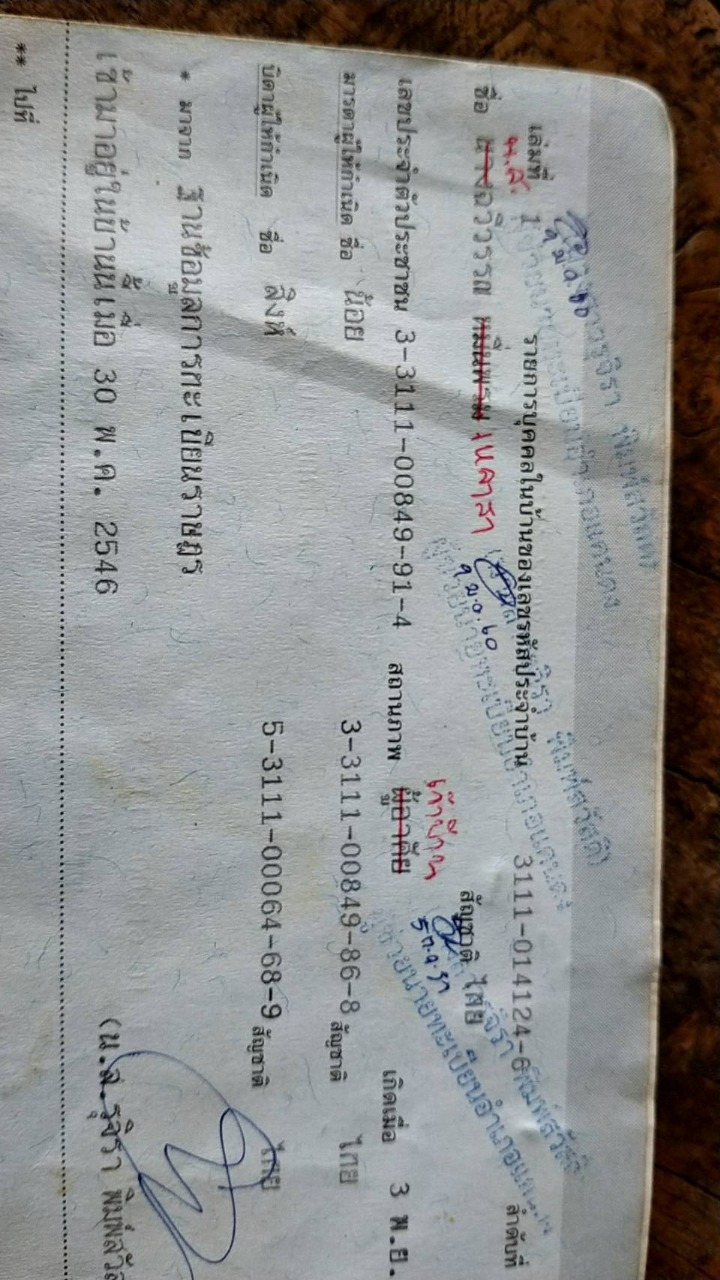 เล่มที่ 1 รายการบุคคลในบ้านของเลขรหัสประจำบ้าน 3111-014124-6 ลำดับที่
น.ส.
ชื่อ นางฉวีวรรณ หมื่นพรม เหลาสา สัญชาติ ไทย
เลขประจำตัวประชาชน 3-3111-00849-91-4 สถานภาพ ผู้อาศัย เจ้าบ้าน เกิดเมื่อ 3 พ.ย.
มารดาผู้ให้กำเนิด ชื่อ น้อย 3-3111-00849-86-8 สัญชาติ ไทย
บิดาผู้ให้กำเนิด ชื่อ สิงห์ 5-3111-00064-68-9 สัญชาติ ไทย
* มาจาก ฐานข้อมูลการทะเบียนราษฎร
เข้ามาอยู่ในบ้านนี้เมื่อ 30 พ.ค. 2546 (น.ส.รุจิรา พิมพ์สวัส
** ไปที่